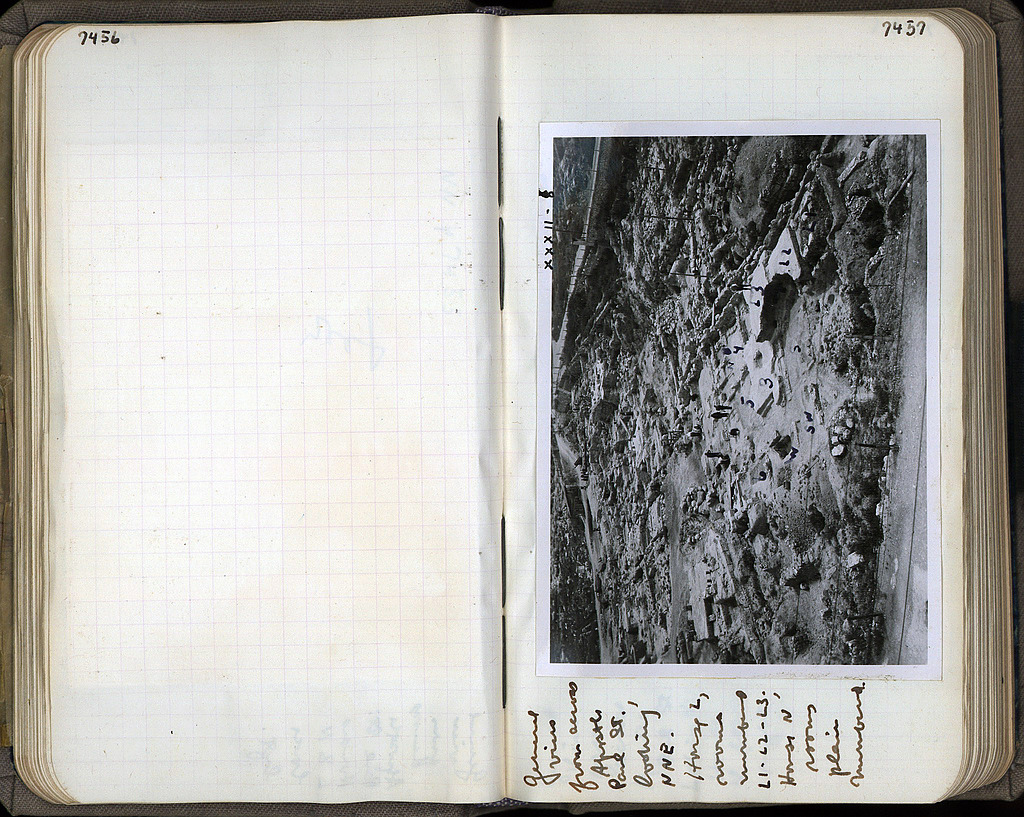 7456
7457
XXXII-8
General
view
from across
Apostle
Paul St.,
looking
NNE.
House L,
rooms
numbered
L1-L2-L3.
House N,
rooms
plain
numbered.